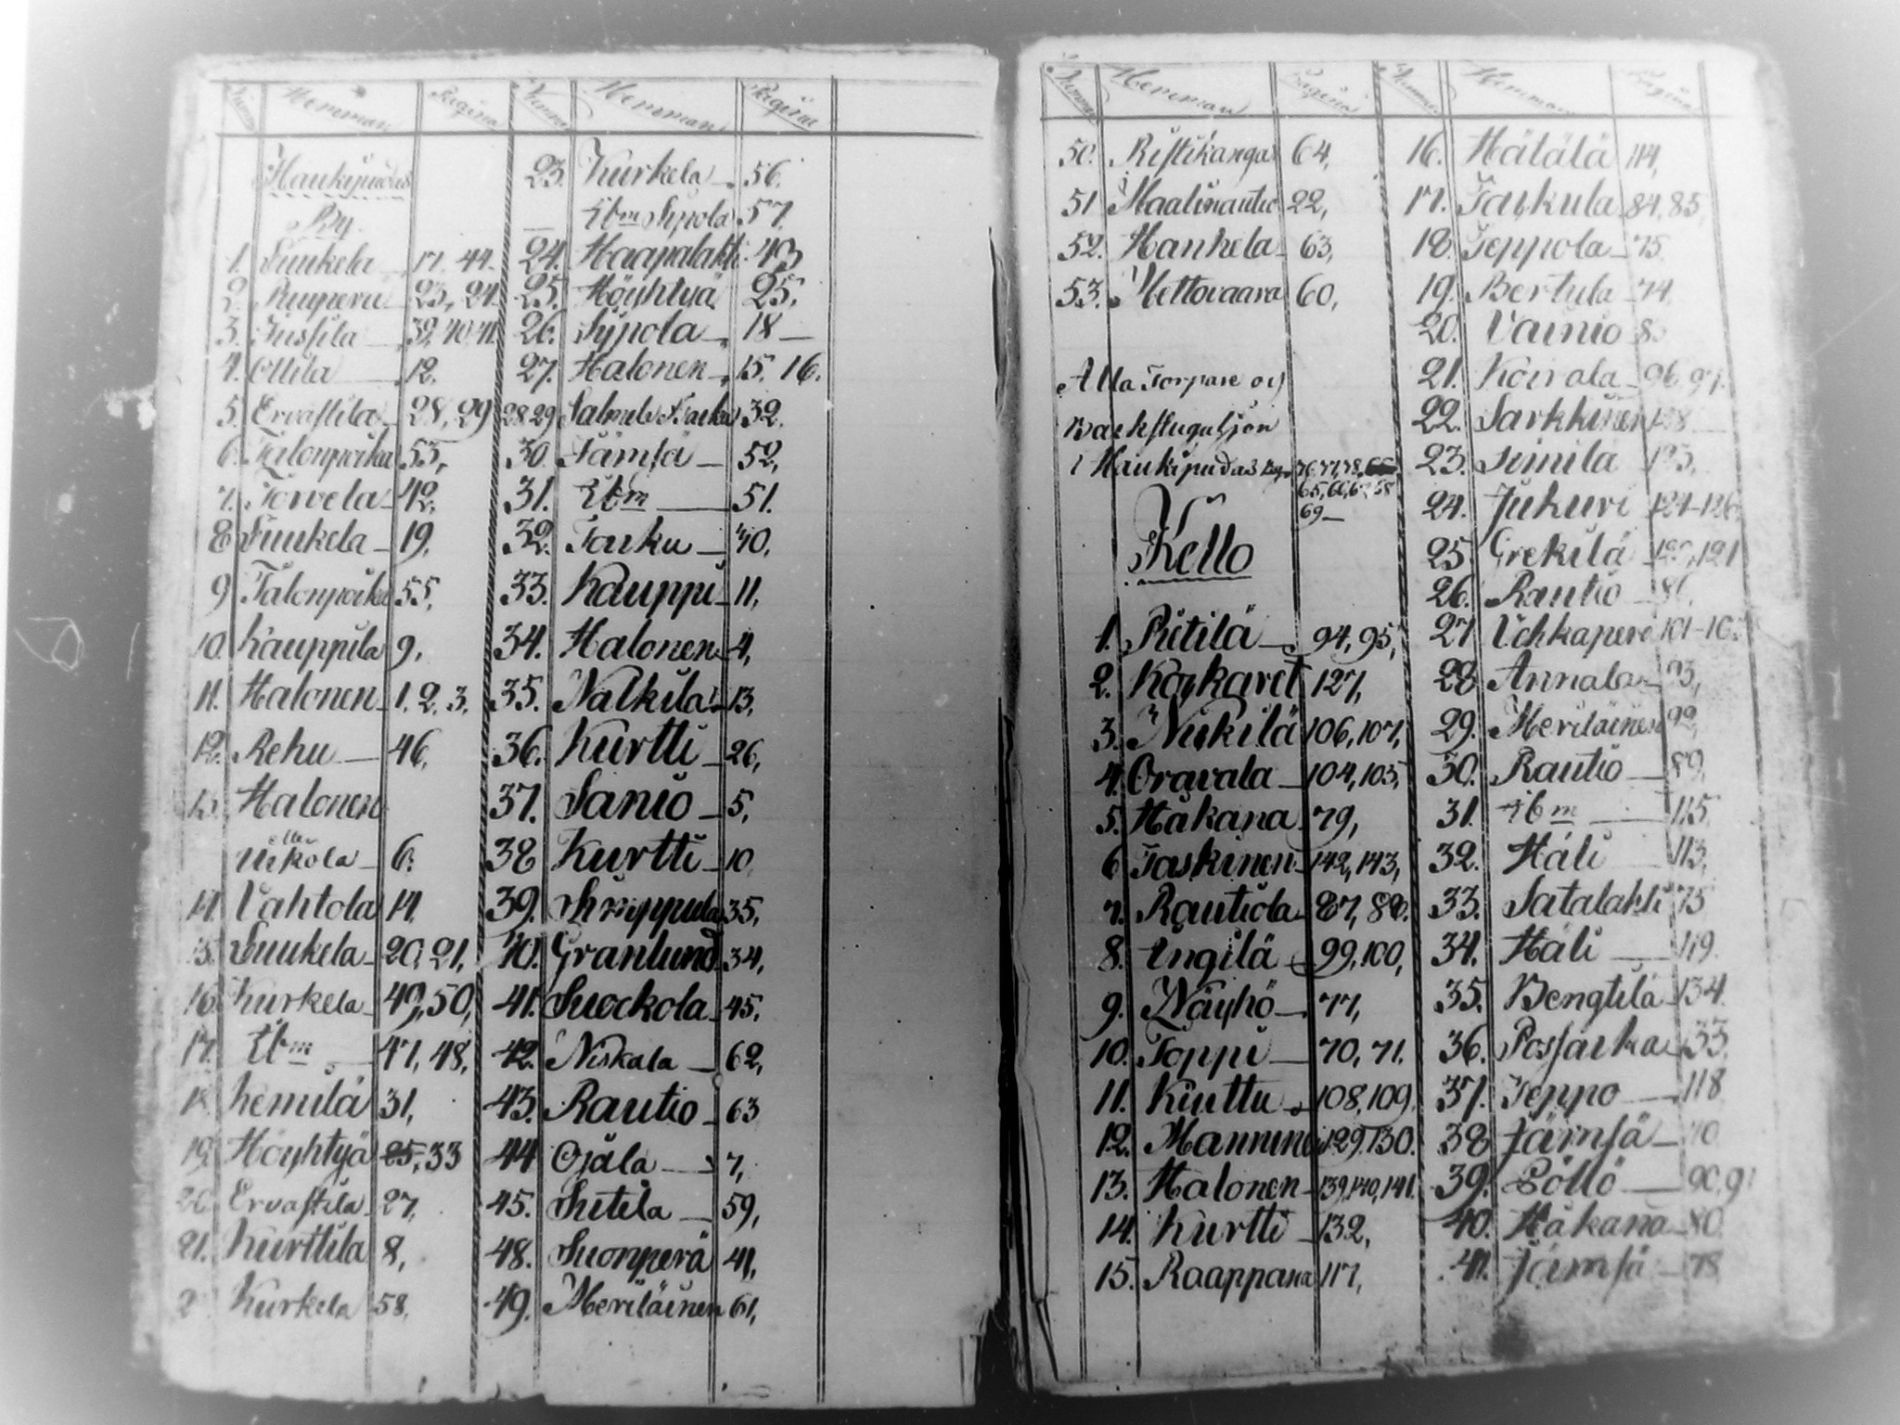 Numero Hemman Pagina Numero Hemman Pagina
Haukipudas
By
1. Suukela 17. 44.
2. Ruuperä 23, 24.
3. Jussila 39, 40, 41.
4. Ollila 12.
5. Ervastila 28, 29
6. Talonpoika 53,
7. Torvela 42,
8 Suukela 19.
9 Talonpoika 55,
10. Kauppila 9,
11. Halonen 1, 2, 3,
12. Rehu 46,
13. Halonen
eller
Ukkola 6.
14 Vahtola 14
15. Suukela 20, 21,
16. Kurkela 49, 50,
17. Ibm 47, 48,
18. Kemilä 31,
19. Höyhtyä 25, 33
20. Ervastila 27,
21. Kurttila 8,
2 Kurkela 58,
23. Kurkela 56.
Ibm Sipola 57.
24. Haapalahti 43
25. Höyhtyä 25,
26. Sipola 18
27. Halonen 15, 16.
28 29 32.
30 Jämsä 52,
31. Ibm 51.
32. Jauku 30,
33. Kauppi 11,
34. Halonen 4,
35. Nalkila 13,
36. Kurtti 26,
37. Sanio 5,
38 Kurtti 10
39. 35,
40. Granlund 34,
41. Suockola 45,
42. Niskala 62,
43. Rautio 63
44 Ojala 7,
45. Sitila 59,
48. Suonperä 41,
49. Meriläinen 61,
Numero Hemman Pagina Numero Hemman Pagina
50. Ristikangas 64,
51 Maalinautio 22,
52. Hankela 63,
53. Mettovaara 60,
Alla Torpare och
Backstuguhjon
i Haukipudas By
65, 66, 67 68
69
Kello
1. Riitilä 94, 95,
2. Köykäret 127,
3. Niskilä 106, 107,
4. Oravala 104, 105,
5. Håkana 79,
6 Jaskinen 142, 143,
7. Rautiola 87, 88.
8. Engilä 99, 100,
9. Näyhö 77,
10. Toppi 70, 71.
11. Kiuttu 108, 109.
12. Manninen 129. 130.
13. Halonen 139, 140, 141.
14. Kurtti 132,
15. Raappana 117,
16. Hälälä 114,
17. Jaukula 84, 85,
18. Jeppola 75.
19. Bertula 74,
20. Vainio
21. Koivola 96, 97.
22. Sarkkinen
23. Simila
24. Jukuri 124-126,
25. Grekilä
26. Rautio
27 Uhkaperä
28. Annala
29. Meriläinen 92,
30. Rautio 89,
31. Ibm 115,
32. Häli 113,
33. Satalahti
34. Häli 119.
35. Bengtilä 134.
36.
37. Jeppo 118
38 Jämsä
39. Pöllö 90, 91
40. Håkana 80.
41. Jämsä 78